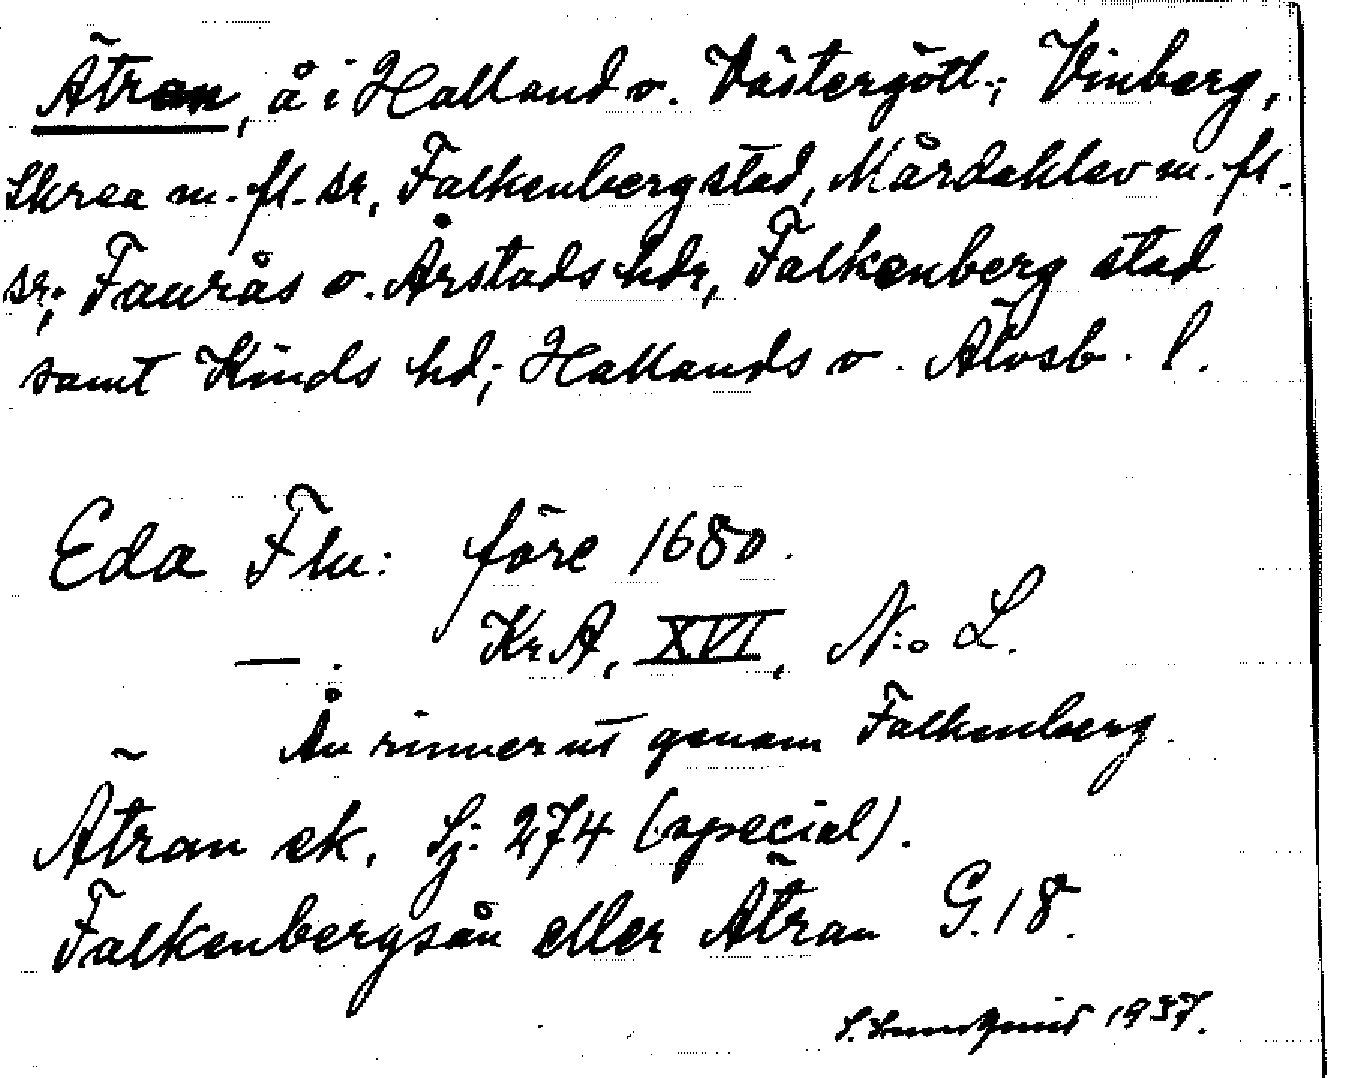 Ätran, å i Halland o. Västergötl.; Vinberg,
Skrea m. fl. sr, Falkenberg stad, Mårdaklev m. fl.
sr; Faurås o. Årstads hdr, Falkenberg stad
samt Kinds hd; Hallands o. Älvsb. l.
Eda Flu: före 1680.
— : KrA, XVI, N:o L.
Ån rinner ut genom Falkenberg.
Ätran ek. Sj: 274 (special).
Falkenbergsån eller Ätran G. 18.
S. Lundquist 1937.